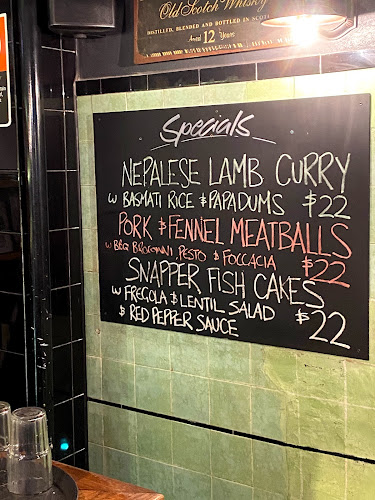 Old Scotch Whisky
DISTILLED, BLENDED AND BOTTLED IN SCOT
Aged 12 Years
Specials
NEPALESE LAMB CURRY
W BASMATI RICE & PAPADUMS $22
PORK & FENNEL MEATBALLS
W BBQ BROCOLINNI, PESTO & FOCCACIA $22
SNAPPER FISH CAKES
W FREGOLA & LENTIL SALAD
& RED PEPPER SAUCE $22